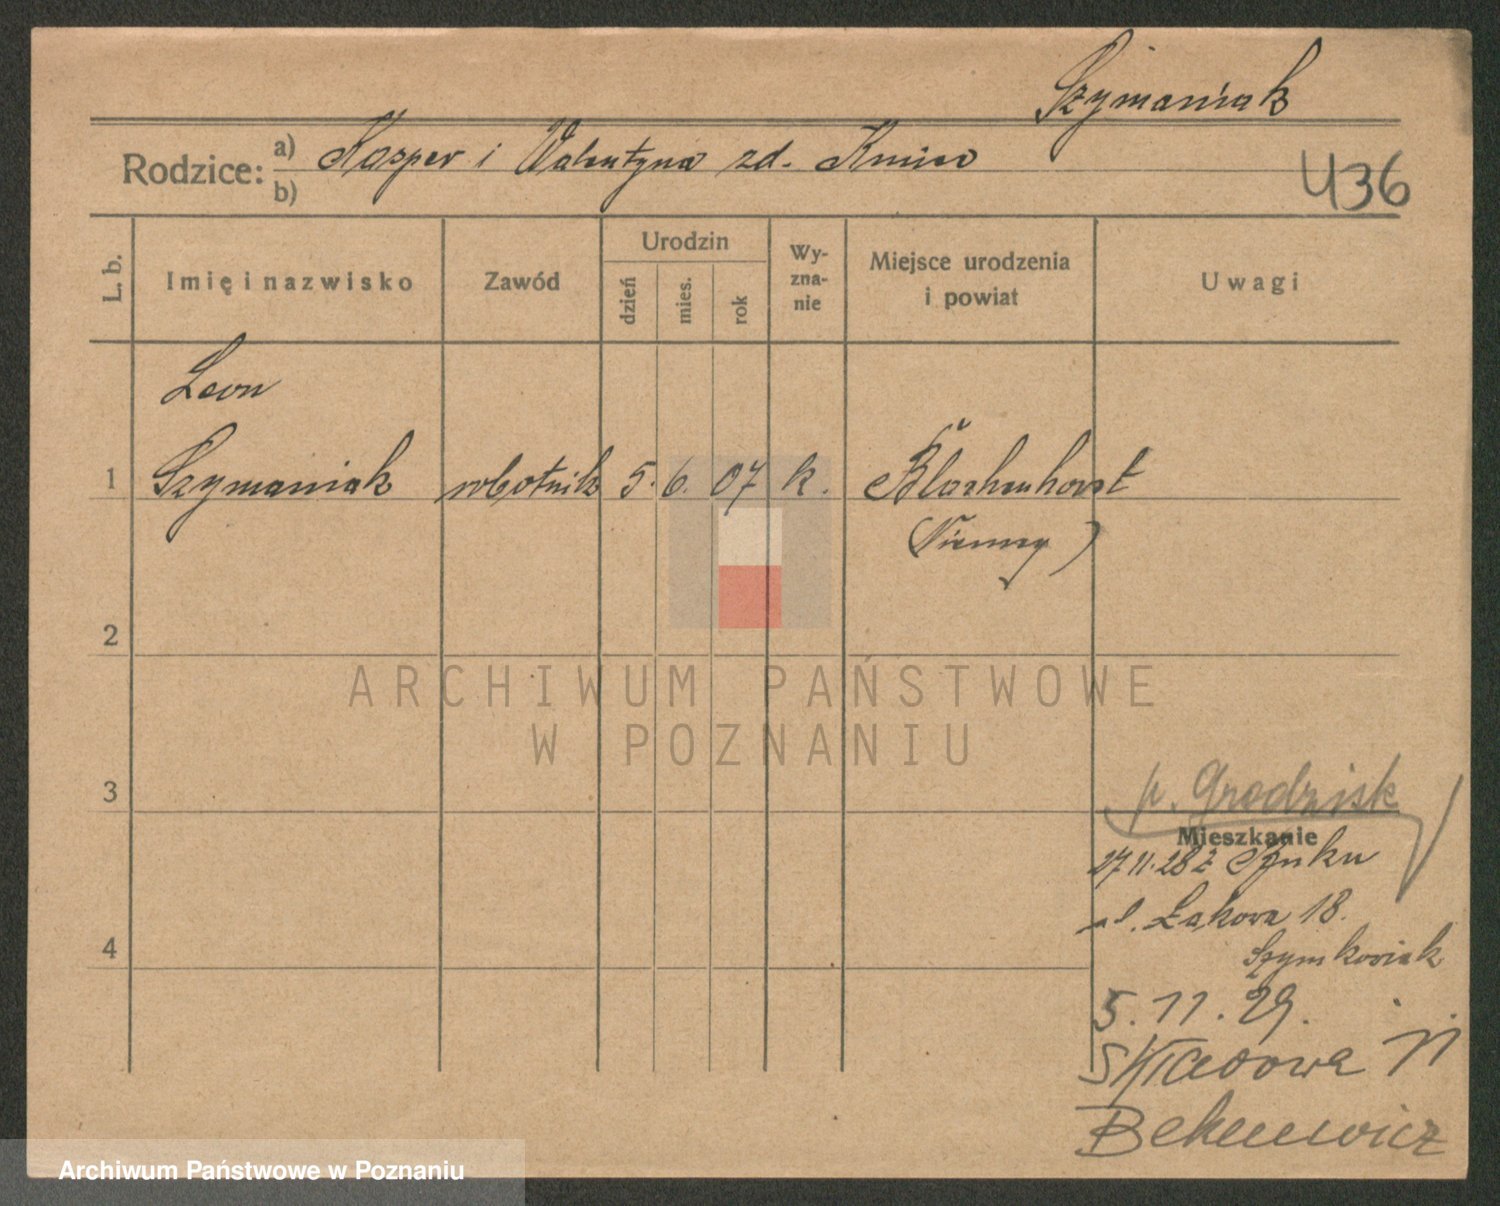 Szymaniak
Rodzice: a) Kasper i Walentyna zd. Kmiec
b)
436
L. b.
Imię i nazwisko
Zawód
Urodzin
dzień
mies.
rok
Wy-
zna-
nie
Miejsce urodzenia
i powiat
Uwagi
Leon
1 Szymaniak robotnik 5. 6. 07 k.
(Niemcy)
2
ARCHIWUM PAŃSTWOWE
W POZNANIU
3
p. Grodzisk
Mieszkanie
27 11. 28 z
ul. Łąkowa 18.
Szymkowiak
4
5. 11. 29.
Składowa 11
Archiwum Państwowe w Poznaniu